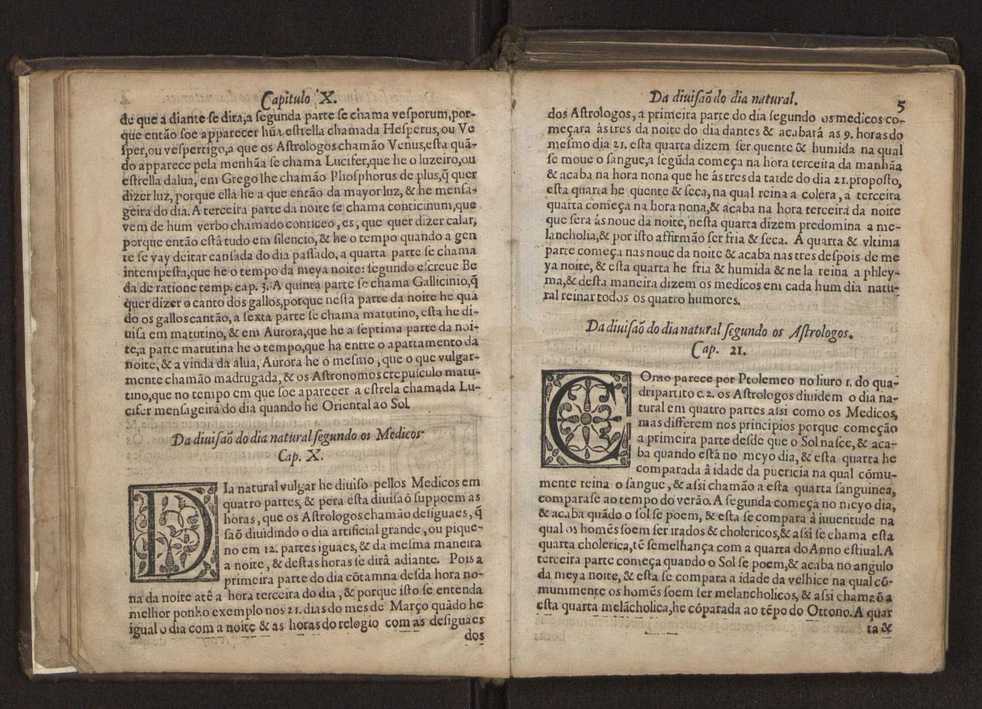 Capitulo X.
de que a diante se dira, a segunda parte se chama vesporum, por-
que então soe apparecer hũa estrella chamada Hesperus, ou Ve
sper, ou vespertigo, a que os Astrologos chamão Venus, esta quã-
do apparece pela menhãa se chama Lucifer, que he o luzeiro, ou
estrella dalua, em Grego lhe chamão Phosphorus de plus, q̃ quer
dizer luz, porque ella he a que então da mayor luz, & he mensa-
geira do dia. A terceira parte da noite se chama conticinium, que
vem de hum verbo chamado conticeo, es, que quer dizer calar,
porque então està tudo em silencio, & he o tempo quando a gen
te se vay deitar cansada do dia passado, a quarta parte se chama
intempesta, que he o tempo da meya noite: segundo escreue Be
da de ratione temp. cap. 3. A quinta parte se chama Gallicinio, q̃
quer dizer o canto dos gallos, porque nesta parte da noite he qua
do os gallos cantão, a sexta parte se chama matutino, esta he di-
uisa em matutino, & em Aurora, que he a septima parte da noi-
te, a parte matutina he o tempo, que ha entre o apartamento da
noite, & a vinda da alua, Aurora he o mesmo, que o que vulgar-
mente chamão madrugada, & os Astronomos crepusculo matu-
tino, que no tempo em que soe aparecer a estrela chamada Lu-
cifer mensageira do dia quando he Oriental ao Sol.
Da diuisaõ do dia natural segundo os Medicos
Cap. X.
DIa natural vulgar he diuiso pellos Medicos em
quatro partes, & pera esta diuisaõ suppoem as
horas, que os Astrologos chamão desiguaes, q̃
saõ diuidindo o dia artificial grande, ou pique-
no em 12. partes iguaes, & da mesma maneira
a noite, & destas horas se dirà adiante. Pois a
primeira parte do dia cõtamna desda hora no-
na da noite atê a hora terceira do dia, & porque isto se entenda
melhor ponho exemplo nos 21. dias do mes de Março quãdo he
igual o dia com a noite & as horas do relogio com as desiguaes
dos
Da diuisaõ do dia natural. 5
dos Astrologos, a primeira parte do dia segundo os medicos co-
meçara às tres da noite do dia dantes & acabarà as 9. horas do
mesmo dia 21. esta quarta dizem ser quente & humida na qual
se moue o sangue, a segũda começa na hora terceira da manhãa
& acaba na hora nona que he às tres da tarde do dia 21. proposto,
esta quarta he quente & seca, na qual reina a colera, a terceira
quarta começa na hora nona, & acaba na hora terceira da noite
que sera às noue da noite, nesta quarta dizem predomina a me-
lancholia, & por isto affirmão ser fria & seca. A quarta & vltima
parte começa nas noue da noite & acaba nas tres despois de me
ya noite, & esta quarta he fria & humida & nela reina a phley-
ma, & desta maneira dizem os medicos em cada hum dia natu-
ral reinar todos os quatro humores.
Da diuisaõ do dia natural segundo os Astrologos.
Cap. 21.
COmo parece por Ptolemeo no liuro 1. do qua-
dripartito c. 2. os Astrologos diuidem o dia na-
tural em quatro partes assi como os Medicos,
mas differem nos principios porque começão
a primeira parte desde que o Sol nasce, & aca-
ba quando està no meyo dia, & esta quarta he
comparada â idade da puericia na qual cõmu-
mente reina o sangue, & assi chamão a esta quarta sanguinea,
comparase ao tempo do verão. A segunda começa no meyo dia,
& acaba quãdo o sol se poem, & esta se compara à iuuentude na
qual os homẽs soem ser irados & cholericos, & assi se chama esta
quarta cholerica, tẽ semelhança com a quarta do Anno estiual. A
terceira parte começa quando o Sol se poem, & acaba no angulo
da meya noite, & esta se compara a idade da velhice na qual cõ-
mummente os homẽs soem ser melancholicos, & assi chamão a
esta quarta melãcholica, he cõparada ao tẽpo do Ottono. A quar
ta &